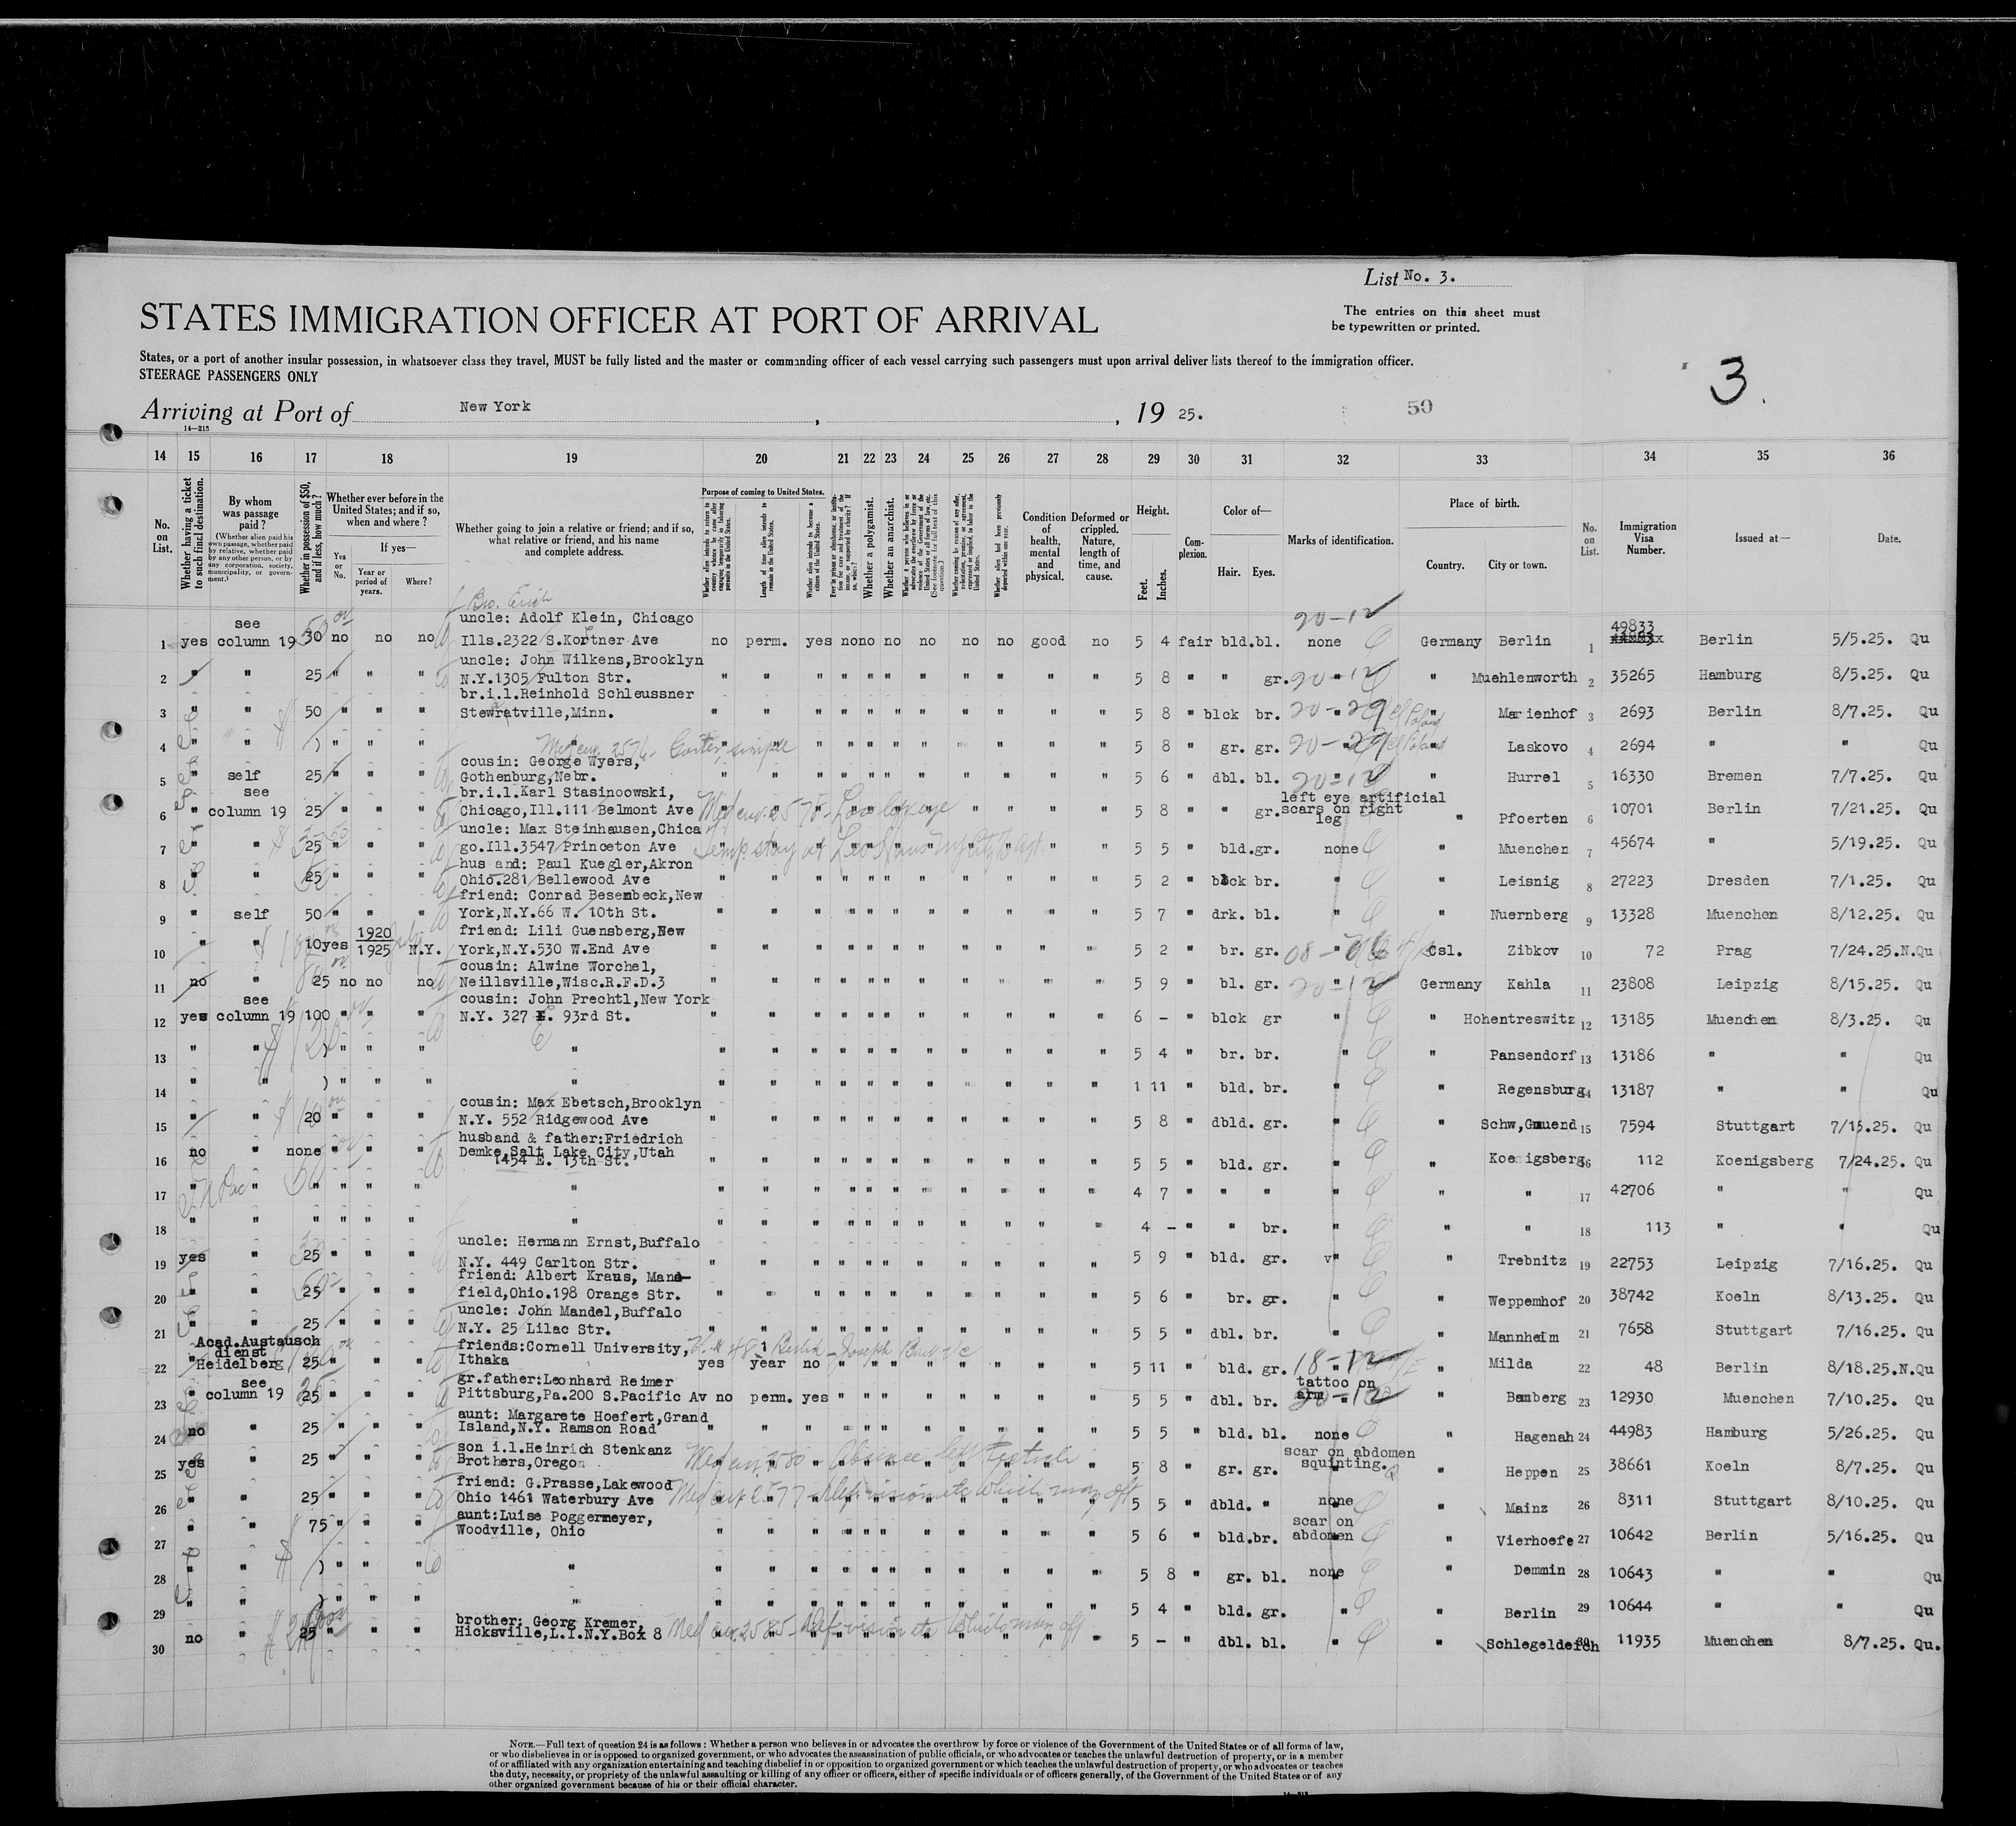 List No. 3.
STATES IMMIGRATION OFFICER AT PORT OF ARRIVAL
The entries on this sheet must
be typewritten or printed.
States, or a port of another insular possession, in whatsoever class they travel, MUST be fully listed and the master or commanding officer of each vessel carrying such passengers must upon arrival deliver lists thereof to the immigration officer.
STEERAGE PASSENGERS ONLY
3.
Arriving at Port of New York, , 19 25. 50
14 15 16 17 18 19 20 21 22 23 24 25 26 27 28 29 30 31 32 33 34 35 36
No. on List.
Whether having a ticket to such final destination.
By whom was passage paid?
(Whether alien paid his own passage, whether paid by relative, whether paid by any other person, or by any corporation, society, municipality, or government.)
Whether in possession of $50, and if less, how much?
Whether ever before in the United States; and if so, when and where?
Yes or No.
If yes—
Year or period of years.
Where?
Whether going to join a relative or friend; and if so, what relative or friend, and his name and complete address.
Purpose of coming to United States.
Length of time alien intends to remain in the United States.
Whether alien intends to become a citizen of the United States.
Whether a polygamist.
Whether an anarchist.
Condition of health, mental and physical.
Deformed or crippled. Nature, length of time, and cause.
Height.
Feet. Inches.
Complexion.
Color of—
Hair. Eyes.
Marks of identification.
Place of birth.
Country. City or town.
No. on List.
Immigration Visa Number.
Issued at—
Date.
Bro. Erich
see uncle: Adolf Klein, Chicago 20-12 49833
1 yes column 19 30 no no no Ills.2322 S.Kortner Ave no perm. yes no no no no no good no 5 4 fair bld. bl. none Germany Berlin 1 Berlin 5/5.25. Qu
uncle: John Wilkens,Brooklyn
2 " " 25 " " " N.Y.1305 Fulton Str. " " " " " " " " " " " 5 8 " " gr. 20-12 " " Muehlenworth 2 35265 Hamburg 8/5.25. Qu
br.i.l.Reinhold Schleussner
3 " " 50 " " " Stewratville,Minn. " " " " " " " " " " " 5 8 " blck br. 20-29 " Marienhof 3 2693 Berlin 8/7.25. Qu
4 " " ) " " " " " " " " " " " " " " 5 8 " gr. gr. 20-29 " Laskovo 4 2694 " " Qu
cousin: George Wyers,
5 " self 25 " " " Gothenburg,Nebr. " " " " " " " " " " " 5 6 " dbl. bl. 20-12 " Hurrel 5 16330 Bremen 7/7.25. Qu
see br.i.l.Karl Stasinoowski, left eye artificial
6 " column 19 25 " " " Chicago,Ill.111 Belmont Ave " " " " " " " " " " " 5 8 " " gr. scars on right leg " Pfoerten 6 10701 Berlin 7/21.25. Qu
uncle: Max Steinhausen,Chica
7 " " 25 " " " go.Ill.3547 Princeton Ave " " " " " " " " " 5 5 " bld. gr. none " Muenchen 7 45674 " 5/19.25. Qu
hus and: Paul Kuegler,Akron
8 " " 25 " " " Ohio.281 Bellewood Ave " " " " " " " " " " " 5 2 " blck br. " " Leisnig 8 27223 Dresden 7/1.25. Qu
friend: Conrad Besembeck,New
9 " self 50 " " " York,N.Y.66 W. 10th St. " " " " " " " " " " " 5 7 " drk. bl. " " Nuernberg 9 13328 Muenchen 8/12.25. Qu
1920 friend: Lili Guensberg,New
10 " " 10 yes 1925 N.Y. York,N.Y.530 W.End Ave " " " " " " " " " " " 5 2 " br. gr. " Csl. Zibkov 10 72 Prag 7/24.25.N.Qu
cousin: Alwine Worchel,
11 no " 25 no no no Neillsville,Wisc.R.F.D.3 " " " " " " " " " " " 5 9 " bl. gr. 20-12 Germany Kahla 11 23808 Leipzig 8/15.25. Qu
see cousin: John Prechtl,New York
12 yes column 19 100 " " " N.Y. 327 E. 93rd St. " " " " " " " " " " " 6 - " blck gr " " Hohentreswitz 12 13185 Muenchen 8/3.25. Qu
13 " " ) " " " " " " " " " " " " " " " " " 5 4 " br. br. " " Pansendorf 13 13186 " " Qu
14 " " ) " " " " " " " " " " " " " " " " " 1 11 " bld. br. " " Regensburg 14 13187 " " Qu
cousin: Max Ebetsch,Brooklyn
15 " " 20 " " " N.Y. 552 Ridgewood Ave " " " " " " " " " " " 5 8 " dbld. gr. " " Schw,Gmuend 15 7594 Stuttgart 7/15.25. Qu
husband & father:Friedrich
16 no " none " " " Demke,Salt Lake City,Utah
1454 E. 13th St. " " " " " " " " " " " 5 5 " bld. gr. " " Koenigsberg 16 112 Koenigsberg 7/24.25. Qu
17 " " " " " " " " " " " " " " " " " " 4 7 " " " " " " 17 42706 " " Qu
18 " " " " " " " " " " " " " " " " " " 4 - " " br. " " " 18 113 " " Qu
uncle: Hermann Ernst,Buffalo
19 yes " 25 " " " N.Y. 449 Carlton Str. " " " " " " " " " " " 5 9 " bld. gr. " " Trebnitz 19 22753 Leipzig 7/16.25. Qu
friend: Albert Kraus, Mans-
20 " " 25 " " " field,Ohio.198 Orange Str. " " " " " " " " " " " 5 6 " br. gr. " " Weppemhof 20 38742 Koeln 8/13.25. Qu
uncle: John Mandel,Buffalo
21 " " 25 " " " N.Y. 25 Lilac Str. " " " " " " " " " " " 5 5 " dbl. br. " " Mannheim 21 7658 Stuttgart 7/16.25. Qu
Acad.Austausch
dienst friends:Cornell University,
22 " Heidelberg 25 " " " Ithaka yes 1 year no " " " " " " " " 5 11 " bld. gr. 18-12 " Milda 22 48 Berlin 8/18.25.N.Qu
see gr.father:Leonhard Reimer tattoo on
23 " column 19 25 " " " Pittsburg,Pa.200 S.Pacific Av no perm. yes " " " " " " " " 5 5 " dbl. br. arm 20-12 " Bamberg 23 12930 Muenchen 7/10.25. Qu
aunt: Margarete Hoefert,Grand
24 no " 25 " " " Island,N.Y. Ramson Road " " " " " " " " " " " 5 5 " bld. bl. none " Hagenah 24 44983 Hamburg 5/26.25. Qu
son i.l.Heinrich Stenkanz scar on abdomen
25 yes " 25 " " " Brothers,Oregon " " " " " " " " " " " 5 8 " gr. gr. squinting. " Heppen 25 38661 Koeln 8/7.25. Qu
friend: G.Prasse,Lakewood
26 " " 25 " " " Ohio 1461 Waterbury Ave " " " " " " " " " " " 5 5 " dbld. " none " Mainz 26 8311 Stuttgart 8/10.25. Qu
aunt:Luise Poggermeyer, scar on
27 " " 75 " " " Woodville, Ohio " " " " " " " " " " " 5 6 " bld. br. abdomen " Vierhoefe 27 10642 Berlin 5/16.25. Qu
28 " " ) " " " " " " " " " " " " " " " " " 5 8 " gr. bl. none " Demmin 28 10643 " " Qu
29 " " ) " " " " " " " " " " " " " " " " " 5 4 " bld. gr. " " Berlin 29 10644 " " Qu
brother: Georg Kremer,
30 no " 25 " " " Hicksville,L.I.N.Y.Box 8 " " " " " " " " " " " 5 - " dbl. bl. " " Schlegeldeich 30 11935 Muenchen 8/7.25. Qu.
NOTE.—Full text of question 24 is as follows: Whether a person who believes in or advocates the overthrow by force or violence of the Government of the United States or of all forms of law,
or who disbelieves in or is opposed to organized government, or who advocates the assassination of public officials, or who advocates or teaches the unlawful destruction of property, or is a member
of or affiliated with any organization entertaining and teaching disbelief in or opposition to organized government or which teaches the unlawful destruction of property, or who advocates or teaches
the duty, necessity, or propriety of the unlawful assaulting or killing of any officer or officers, either of specific individuals or of officers generally, of the Government of the United States or of any
other organized government because of his or their official character.